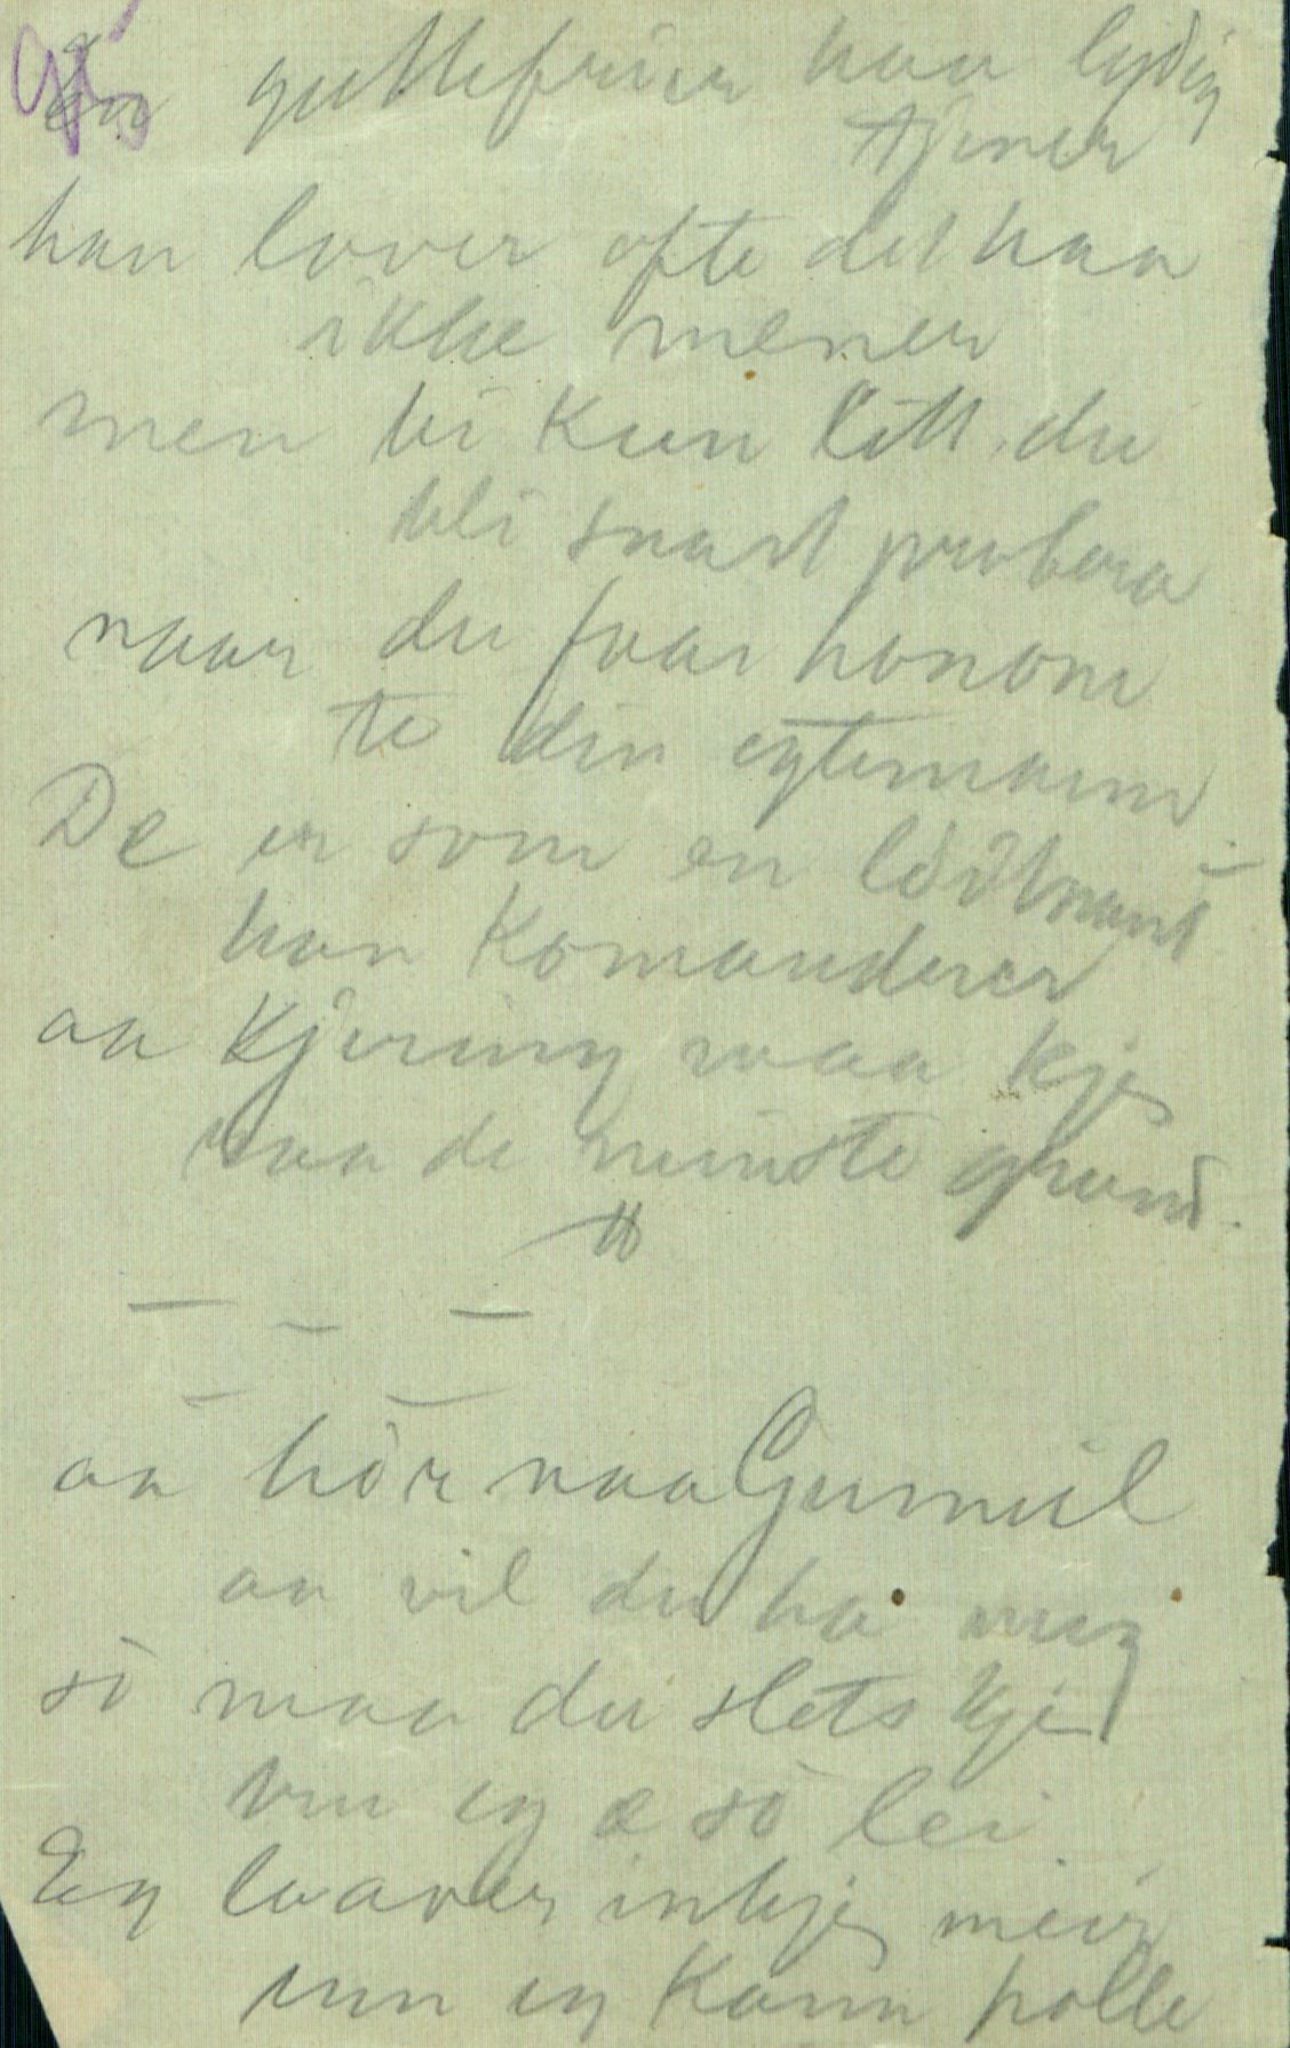 guttefrier haa lydig
tjener
han lover ofte det haa
ikke mener
men bi kun litt du
bli snart probera
naar du faar honom
te din egtemann
De er som en löitnant
han Komanderer
aa Kjering maa kje
naa de minste grunn.
aa hör naa Gunnuil
aa vil du ha meg
sö maa du slets kje
eg æ sö lei
Eg loaver inkje meir
enn eg Kann holle